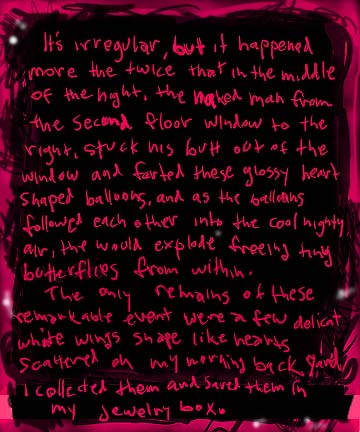 It's irregular, but it happened
more the twice that in the middle
of the night, the naked man from
the second floor window to the
right, stuck his butt out of the
window and farted these glossy heart
shaped balloons, and as the balloons
followed each other into the cool nighty
air, the would explode freeing tiny
butterflies from within.
The only remains of these
remarkable event were a few delicat
white wings shape like hearts
scattered on my morning back yard
I collected them and saved them in
my jewelry box.